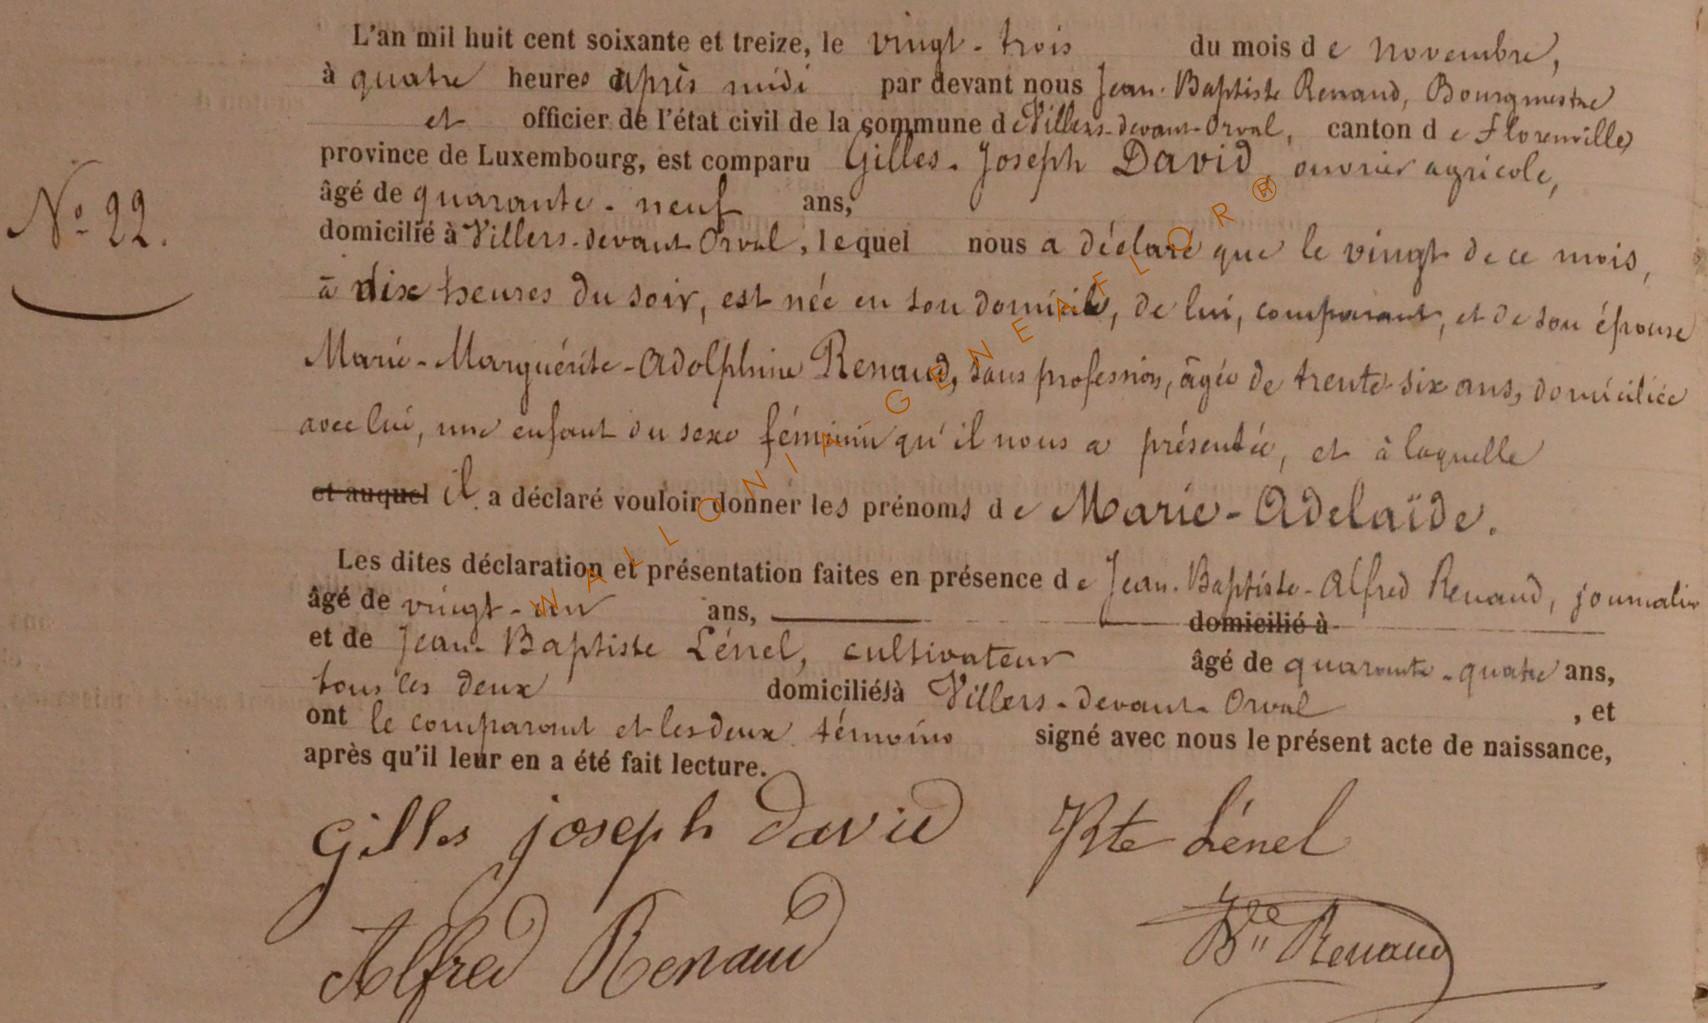 L'an mil huit cent soixante et treize, le vingt-trois du mois de novembre,
à quatre heures après midi par devant nous Jean-Baptiste Renaud, Bourgmestre
et officier de l'état civil de la commune de Villers-devant-Orval, canton de Florenville,
province de Luxembourg, est comparu Gilles-Joseph David, ouvrier agricole,
N° 22.
âgé de quarante-neuf ans,
domicilié à Villers-devant Orval, lequel nous a déclaré que le vingt de ce mois,
à dix heures du soir, est née en son domicile, de lui, comparant, et de son épouse
Marie-Marguérite-Adolphine Renaud, sans profession, âgée de trente-six ans, domiciliée
avec lui, une enfant du sexe féminin qu'il nous a présentée, et à laquelle
et auquel il a déclaré vouloir donner les prénoms de Marie-Adelaïde.
Les dites déclaration et présentation faites en présence de Jean-Baptiste-Alfred Renaud, journalier
âgé de vingt-un ans, domicilié à
et de Jean-Baptiste Lénel, cultivateur âgé de quarante-quatre ans,
tous les deux domiciliés à Villers-devant-Orval, et
ont le comparant et les deux témoins signé avec nous le présent acte de naissance,
après qu'il leur en a été fait lecture.
Gilles joseph david Bte Lénel
Alfred Renaud Renaud
WALLONIA GENEAFLOR®